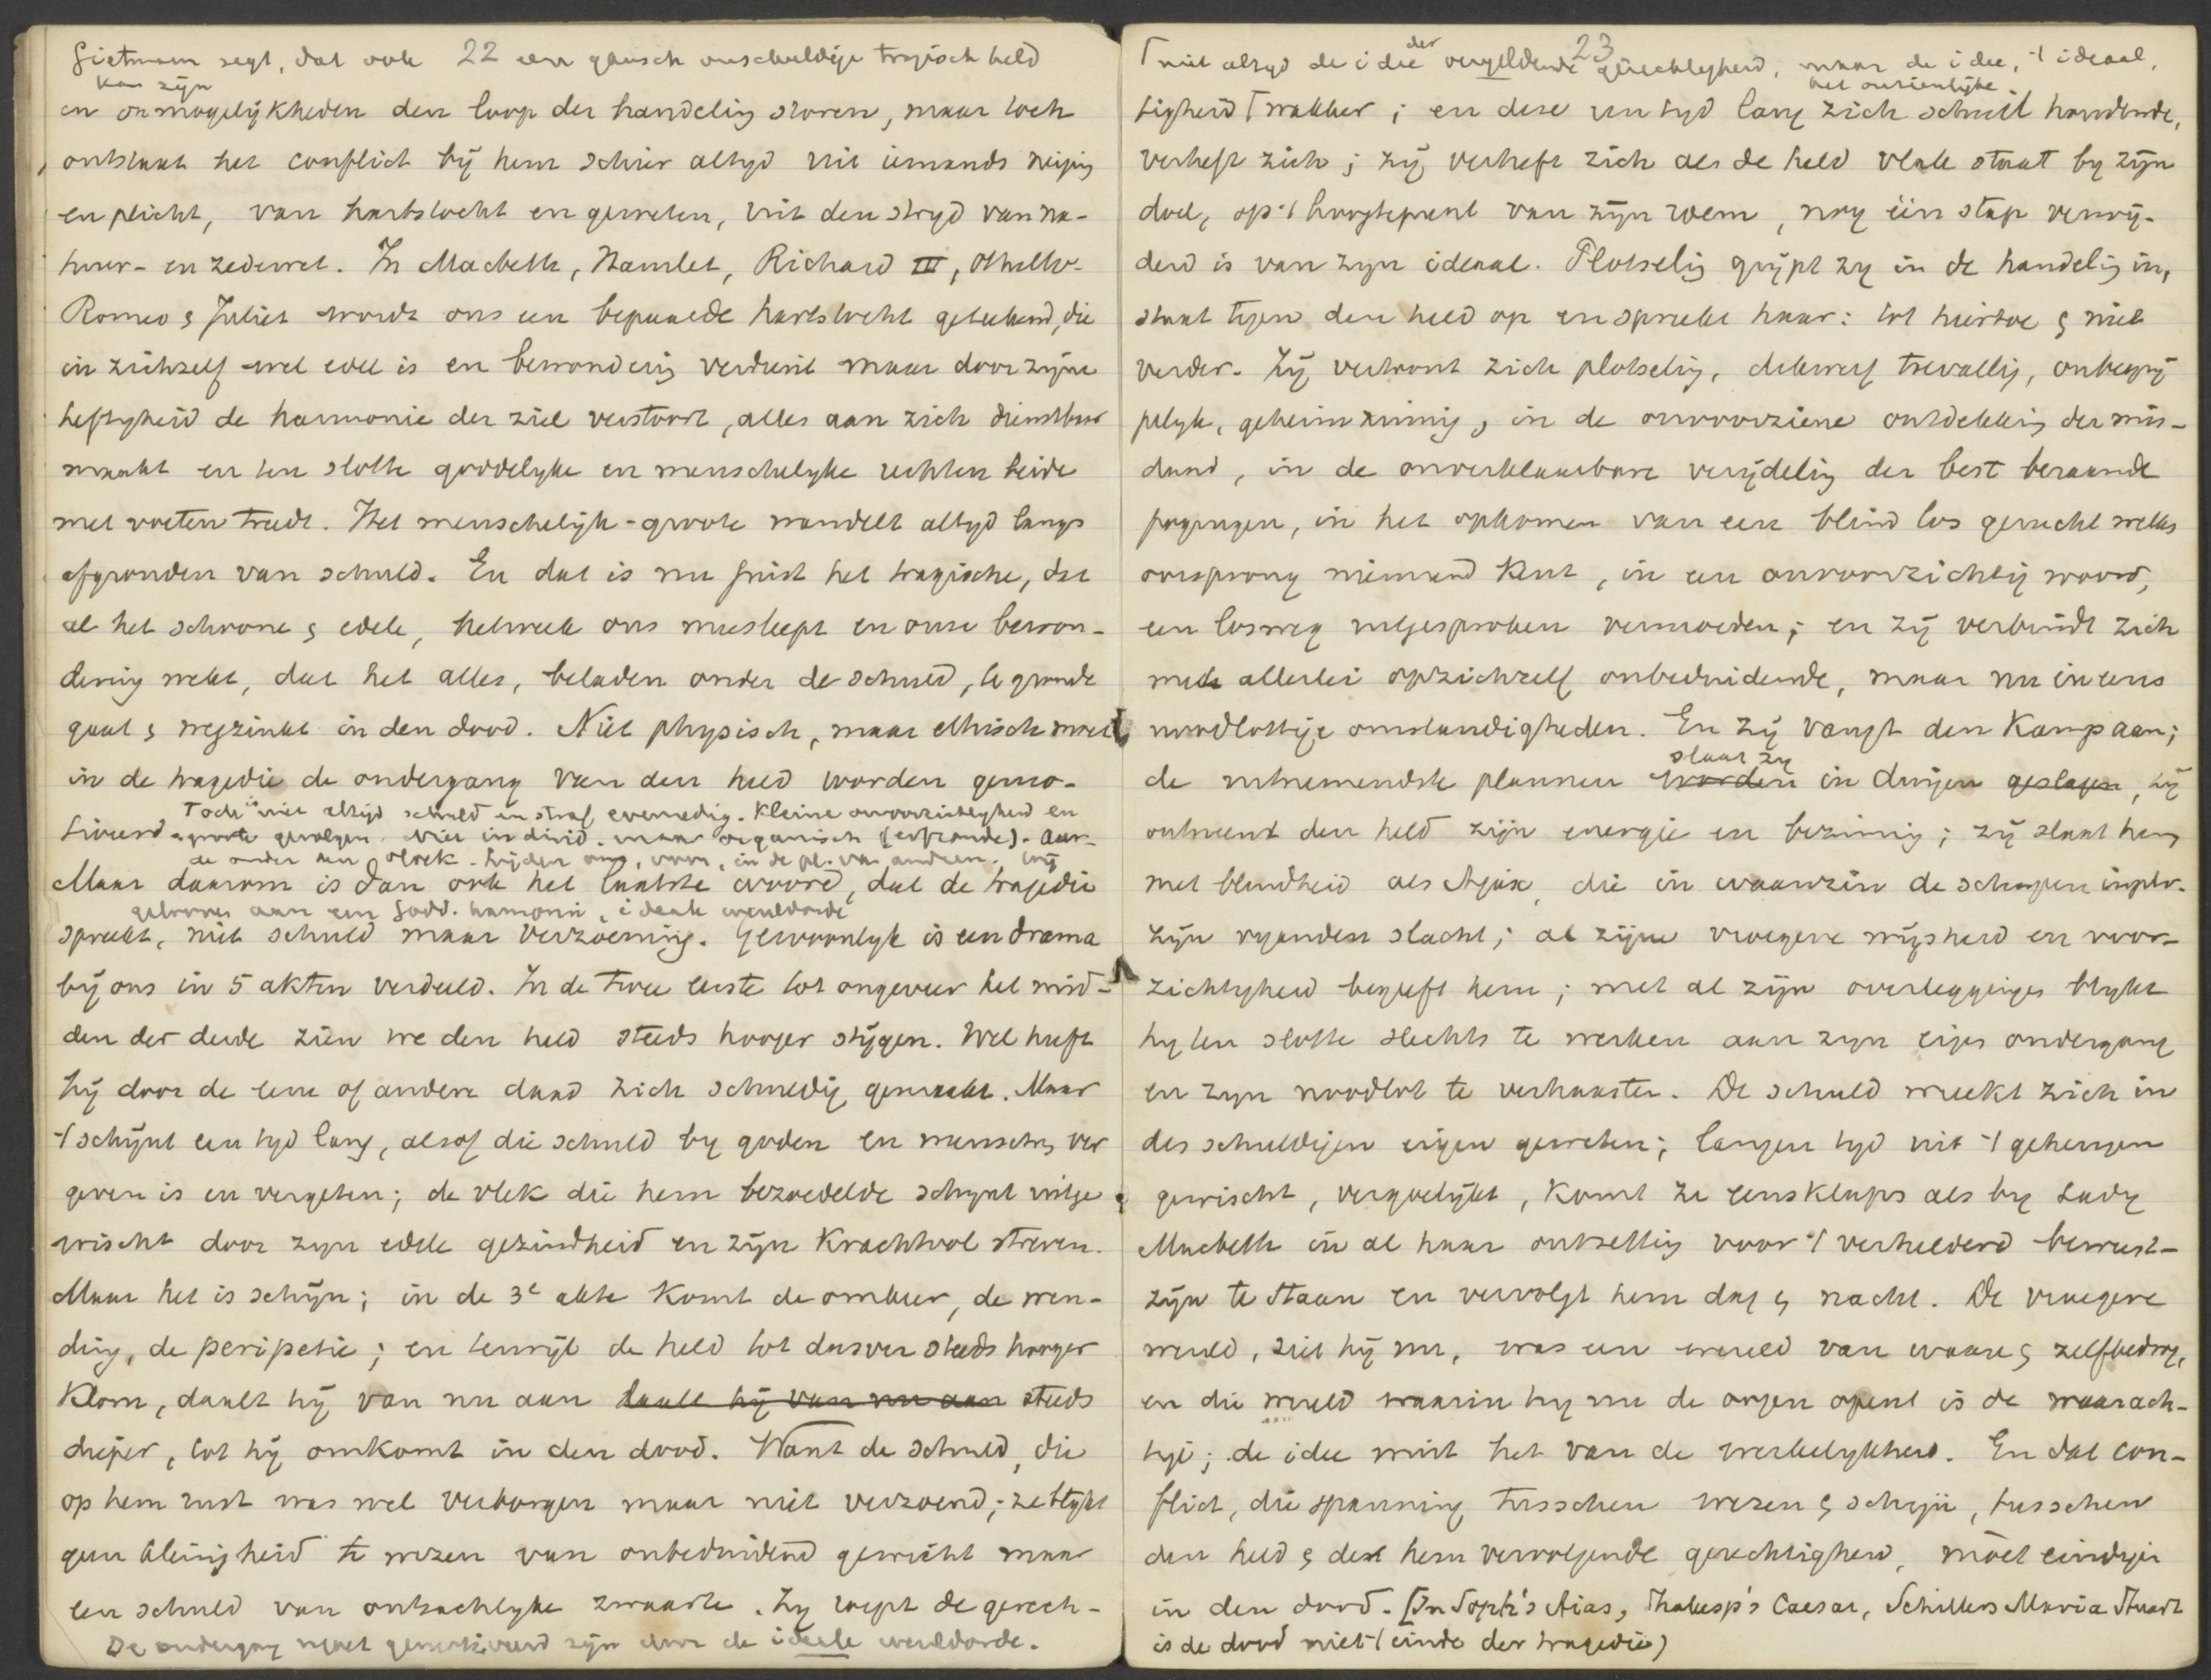 Gietmann zegt, dat ook 22 een gansch onschuldige tragisch held
kan zijn
en onmogelijkheden den loop der handeling storen, maar toch
ontstaat het conflict bij hem schier altijd uit iemands neiging
en plicht, van hartstocht en geweten, uit den strijd van na-
tuur- en zedewet. In Macbeth, Hamlet, Richard III, Othello-
Romeo & Juliet wordt ons een bepaalde hartstocht geteekend, die
in zichzelf wel edel is en bewondering verdient maar door zijne
heftigheid de harmonie der ziel verstoort, alles aan zich dienstbaar
maakt en ten slotte goddelyke en menschelyke rechten beide
met voeten treedt. Het menschelijk-groote wandelt altijd langs
afgronden van schuld. En dat is nu juist het tragische, dat
al het schoone & edele, hetwelk ons meesleept en onze bewon-
dering wekt, dat het alles, beladen onder de schuld, te gronde
gaat & wegzinkt in den dood. Niet physisch, maar ethisch moet
in de tragedie de ondergang van den held worden gemo-
Toch is niet altijd schuld en straf evenredig. Kleine onvoorzichtigheid en
tiveerd groote gevolgen. Niet individ. maar organisch (erfzonde). Aar-
de onder den vloek. Lijden onz., voor, in de pl. van anderen. Wij
Maar daarom is dan ook het laatste woord, dat de tragedie
gelooven aan een Godd. harmonie, ideale wereldorde
spreekt, niet schuld maar verzoening. Gewoonlyk is een drama
bij ons in 5 akten verdeeld. In de twee eerste tot ongeveer het mid-
den der derde zien we den held steeds hooger stijgen. Wel heeft
hij door de eene of andere daad zich schuldig gemaakt. Maar
't schijnt een tyd lang, alsof die schuld by goden en menschen ver
geven is en vergeten; de vlek die hem bezoedelde schynt uitge
wischt door zyn edele gezindheid en zijn krachtvol streven.
Maar het is schijn; in de 3e akte komt de omkeer, de wen-
ding, de peripetie; en terwijl de held tot dusver steeds hooger
klom, daalt hij van nu aan daalt hij van nu aan steeds
dieper, tot hij omkomt in den dood. Want de schuld, die
op hem rust was wel verborgen maar niet verzoend; ze blykt
geen kleinigheid te wezen van onbeduidend gewicht maar
een schuld van ontzachlyke zwaarte. Zy roept de gerech-
De ondergang moet gemotiveerd zijn door de ideele wereldorde.
23
der
niet altyd de idee vergeldende gerechtigheid, maar de idee, 't ideaal,
het onzienlijke
tigheid wakker; en deze een tyd lang zich schuil houdende,
verheft zich; zij verheft zich als de held vlak staat by zijn
doel, op 't hoogtepunt van zijn roem, nog één stap verwij-
derd is van zyn ideaal. Plotseling grijpt zy in de handeling in,
staat tegen den held op en spreekt haar: tot hiertoe & niet
verder. Zij vertoont zich plotseling, dikwerf toevallig, onbegrij
pelyk, geheimzinnig, in de onvoorziene ontdekking der mis-
daad, in de onverklaarbare verijdeling der best beraamde
pogingen, in het opkomen van een blind los gerucht welks
oorsprong niemand kent, in een onvoorzichtig woord,
een losweg uitgesproken vermoeden; en zij verbindt zich
met allerlei opzichzelf onbeduidende, maar nu ineens
noodlottige omstandigheden. En zij vangt den kamp aan;
slaat zy
de uitnemendste plannen worden in duigen geslagen, zij
ontneemt den held zijn energie en bezinning; zij slaat hem
met blindheid als Ajax, die in waanzin de schapen in plv.
zijn vyanden slacht; al zijne vroegere wijsheid en voor-
zichtigheid begeeft hem; met al zijn overleggingen blykt
hy ten slotte slechts te werken aan zyn eigen ondergang
en zyn noodlot te verhaasten. De schuld wreekt zich in
des schuldigen eigen geweten; langen tyd uit 't geheugen
gewischt, vergoelijkt, komt ze eensklaps als by Lady
Macbeth in al haar ontzetting voor 't verhelderd bewust-
zijn te staan en vervolgt hem dag & nacht. De vroegere
wereld, ziet hij nu, was een wereld van waan & zelfbedrog,
en die wereld waarin hy nu de oogen opent is de waarach-
tige; de idee wint het van de werkelykheid. En dat con-
flict, die spanning tusschen wezen & schijn, tusschen
den held & deze hem vervolgende gerechtigheid, moet eindigen
in den dood. [In Soph's Aias, Shakesp's Caesar, Schillers Maria Stuart
is de dood niet 't einde der tragedie)